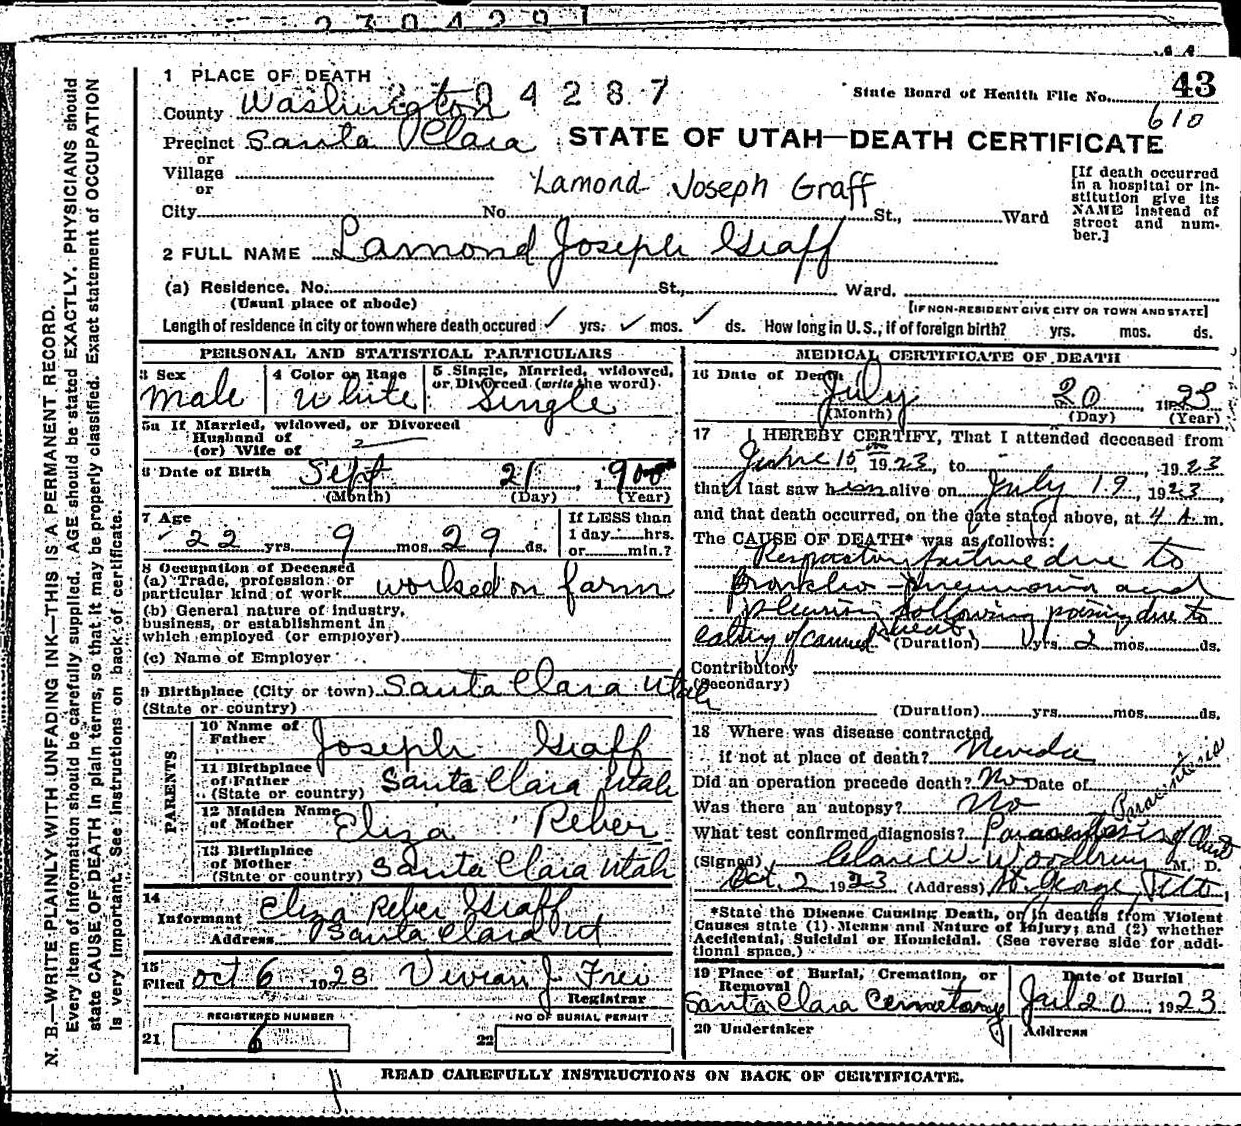 270429
1 PLACE OF DEATH
2304287
State Board of Health File No. 43
County Washington
610
Precinct Santa Clara
STATE OF UTAH—DEATH CERTIFICATE
or
Village
or
Lamond Joseph Graff
[If death occurred in a hospital or institution give its NAME instead of street and number.]
City No. St., Ward
2 FULL NAME Lamond Joseph Graff
(a) Residence. No. St., Ward.
(Usual place of abode)
[IF NON-RESIDENT GIVE CITY OR TOWN AND STATE]
Length of residence in city or town where death occured ✓ yrs. ✓ mos. ✓ ds. How long in U.S., if of foreign birth? yrs. mos. ds.
PERSONAL AND STATISTICAL PARTICULARS
3 Sex Male
4 Color or Race White
5 Single, Married, widowed, or Divorced (write the word). Single
5a If Married, widowed, or Divorced
Husband of
(or) Wife of
6 Date of Birth Sept 21, 1900
(Month) (Day) (Year)
7 Age
22 yrs. 9 mos. 29 ds.
If LESS than 1 day hrs. or min.?
8 Occupation of Deceased
(a) Trade, profession or particular kind of work worked on farm
(b) General nature of industry, business, or establishment in which employed (or employer)
(c) Name of Employer
9 Birthplace (City or town) Santa Clara Utah
(State or country)
PARENTS
10 Name of Father Joseph Graff
11 Birthplace of Father (State or country) Santa Clara Utah
12 Maiden Name of Mother Eliza Reber
13 Birthplace of Mother (State or country) Santa Clara Utah
14
Informant Eliza Reber Graff
Address Santa Clara Ut
15
Filed Oct 6 1923 Vivian J Frei
Registrar
REGISTERED NUMBER
21 6
NO OF BURIAL PERMIT
22
MEDICAL CERTIFICATE OF DEATH
16 Date of Death July 20, 1923
(Month) (Day) (Year)
17 I HEREBY CERTIFY, That I attended deceased from
June 15 1923, to , 1923
that I last saw him alive on July 19, 1923,
and that death occurred, on the date stated above, at 4 A. m.
The CAUSE OF DEATH* was as follows:
Respiratory failure due to
Broncho-pneumonia and
following due to
eating of canned (Duration) yrs. 2 mos. ds.
Contributory
(Secondary)
(Duration) yrs. mos. ds.
18 Where was disease contracted
if not at place of death? Nevada
Did an operation precede death? No Date of
Was there an autopsy? No
Paracintesis
What test confirmed diagnosis? of Chest
(Signed) Clare W. Woodbury M. D.
Oct. 2 1923 (Address) St. George Utah
*State the Disease Causing Death, or in deaths from Violent Causes state (1) Means and Nature of Injury; and (2) whether Accidental, Suicidal or Homicidal. (See reverse side for additional space.)
19 Place of Burial, Cremation, or Removal
Santa Clara Cemetary
Date of Burial
Jul 20 1923
20 Undertaker
Address
READ CAREFULLY INSTRUCTIONS ON BACK OF CERTIFICATE.
N. B.—WRITE PLAINLY WITH UNFADING INK—THIS IS A PERMANENT RECORD.
Every item of information should be carefully supplied. AGE should be stated EXACTLY. PHYSICIANS should
state CAUSE OF DEATH in plain terms, so that it may be properly classified. Exact statement of OCCUPATION
is very important. See instructions on back of certificate.